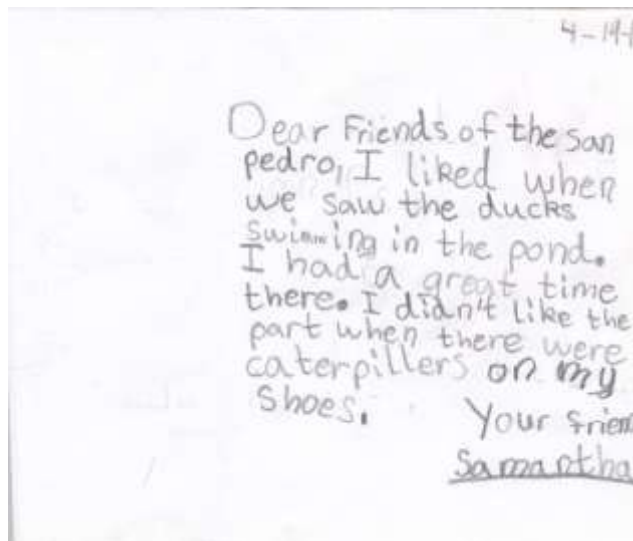 4-19-
Dear Friends of the san
pedro, I liked when
we saw the ducks
swimming in the pond.
I had a great time
there. I didn't like the
part when there were
caterpillers on my
shoes.
Your frien
Samantha